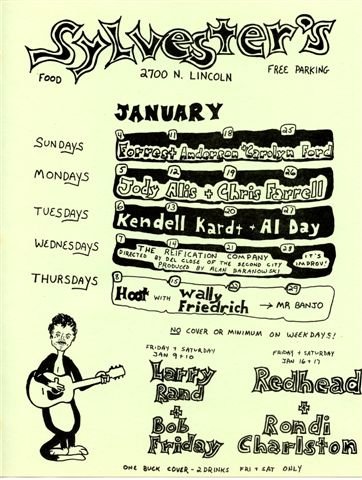 Sylvester's
FOOD 2700 N. LINCOLN FREE PARKING
JANUARY
4 11 18 25
SUNDAYS Forrest Anderson + Carolyn Ford
5 12 19 26
MONDAYS Jody Alis + Chris Farrell
6 13 20 27
TUESDAYS Kendell Kardt + Al Day
7 14 21 28
WEDNESDAYS THE REIFICATION COMPANY
DIRECTED BY DEL CLOSE OF THE SECOND CITY
PRODUCED BY ALAN BARANOWSKI
IT'S
IMPROV!
8 15 29
THURSDAYS Hoot WITH Wally
Friedrich → MR BANJO
NO COVER OR MINIMUM ON WEEKDAYS!
FRIDAY + SATURDAY
JAN 9 + 10
Larry
Rand
+
Bob
Friday
FRIDAY + SATURDAY
JAN 16 + 17
Redhead
+
Rondi
Charlston
ONE BUCK COVER - 2 DRINKS FRI + SAT ONLY